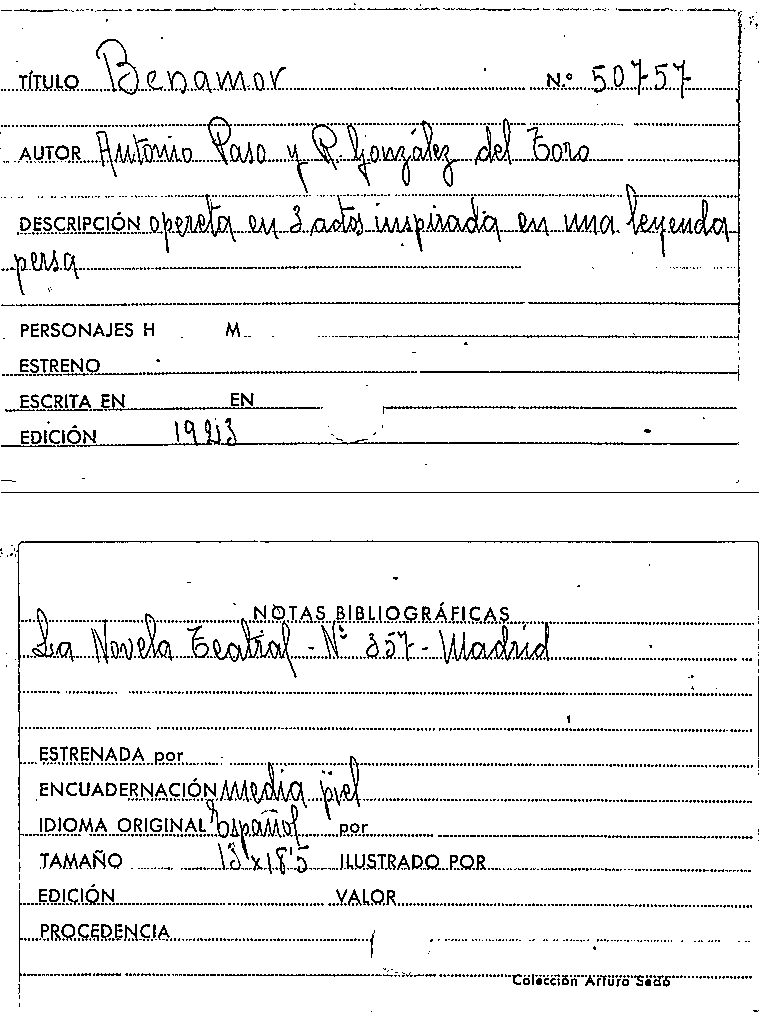 TÍTULO Benamor N.º 50757
AUTOR Antonio Paso y R. González del Toro
DESCRIPCIÓN opereta en 3 actos inspirada en una leyenda
persa
PERSONAJES H M
ESTRENO
ESCRITA EN EN
EDICIÓN 1923
NOTAS BIBLIOGRÁFICAS
La Novela Teatral - Nº 357 - Madrid
ESTRENADA por
ENCUADERNACIÓN media piel
IDIOMA ORIGINAL Español por
TAMAÑO 13'x18'5 ILUSTRADO POR
EDICIÓN VALOR
PROCEDENCIA
Colección Arturo Sedó